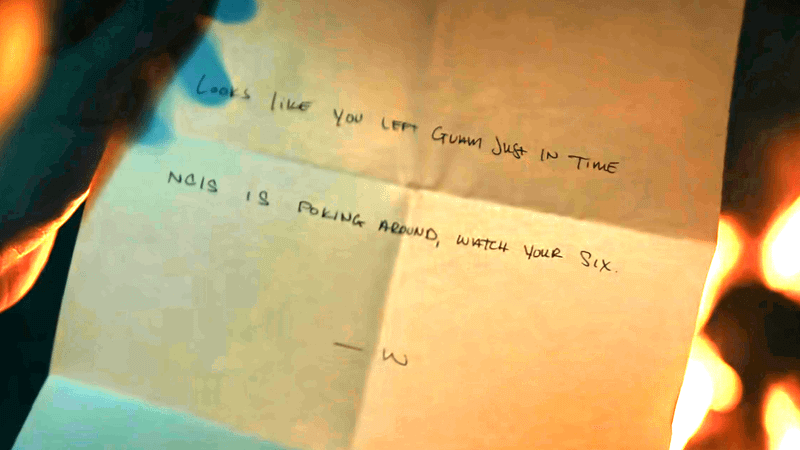 Looks like you left Guam just in time
NCIS is poking around, watch your six.
— W